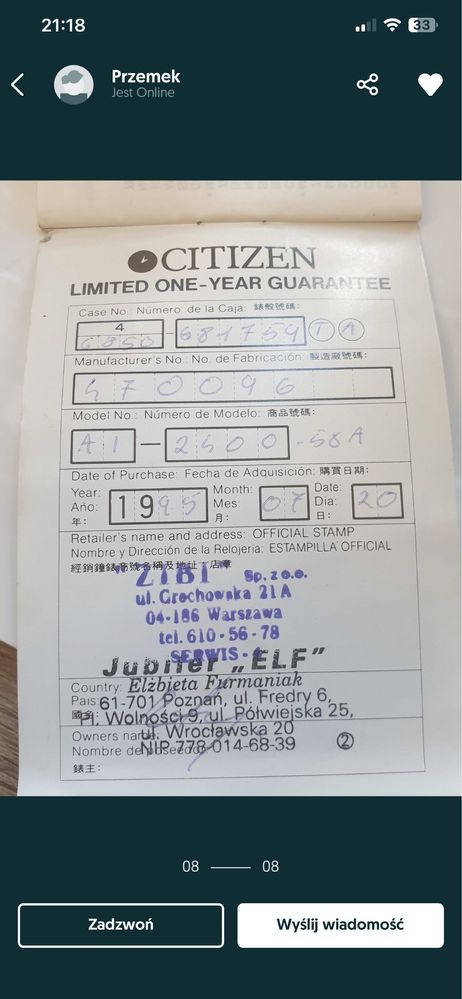 21:18
33
Przemek
Jest Online
CITIZEN
LIMITED ONE-YEAR GUARANTEE
Case No.: Número de la Caja: 錶殼號碼:
4
6850 - 681759 T A
Manufacturer's No.: No. de Fabricación: 製造廠號碼:
470096
Model No.: Número de Modelo: 商品號碼:
A1 - 2500 -58A
Date of Purchase: Fecha de Adquisición: 購買日期:
Year: Month: Date:
Año: 1995 Mes: 07 Dia: 20
年: 月: 日:
Retailer's name and address: OFFICIAL STAMP
Nombre y Dirección de la Relojeria: ESTAMPILLA OFFICIAL
經銷鐘錶商號名稱及地址:店章
"ZIBI" Sp. z o.o.
ul. Grochowska 21A
04-186 Warszawa
tel. 610-56-78
SERWIS -
Jubiler „ELF”
Country: Elżbieta Furmaniak
Pais: 61-701 Poznań, ul. Fredry 6,
Pl. Wolności 9, ul. Półwiejska 25,
Owners name: ul. Wrocławska 20
Nombre de poseedor: NIP 778-014-68-39 2
錶主:
08 08
Zadzwoń
Wyślij wiadomość